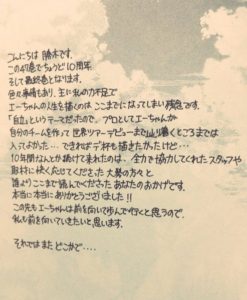 こんにちは 勝木です。
この47巻でちょうど10周年、
そして最終巻となります。
色々事情もあり、主に私の力不足で
エーちゃんの人生を描くのは ここまでになってしまい残念です。
「自立」というテーマだったので、プロとしてエーちゃんが
自分のチームを作って 世界ツアーデビューまで辿り着くところまでは
入ってよかった…できればデ杯も描きたかったけど…
10年間なんとか続けて来れたのは、全力で協力してくれたスタッフや
取材に快く応じてくださった 大勢の方々と
誰よりここまで読んでくださった あなたのおかげです。
本当に本当にありがとうございました!!
この先もエーちゃんは前を向いて歩んで行くと思うので、
私も前を向いていきたいと思います。
それではまた どこかで‥‥